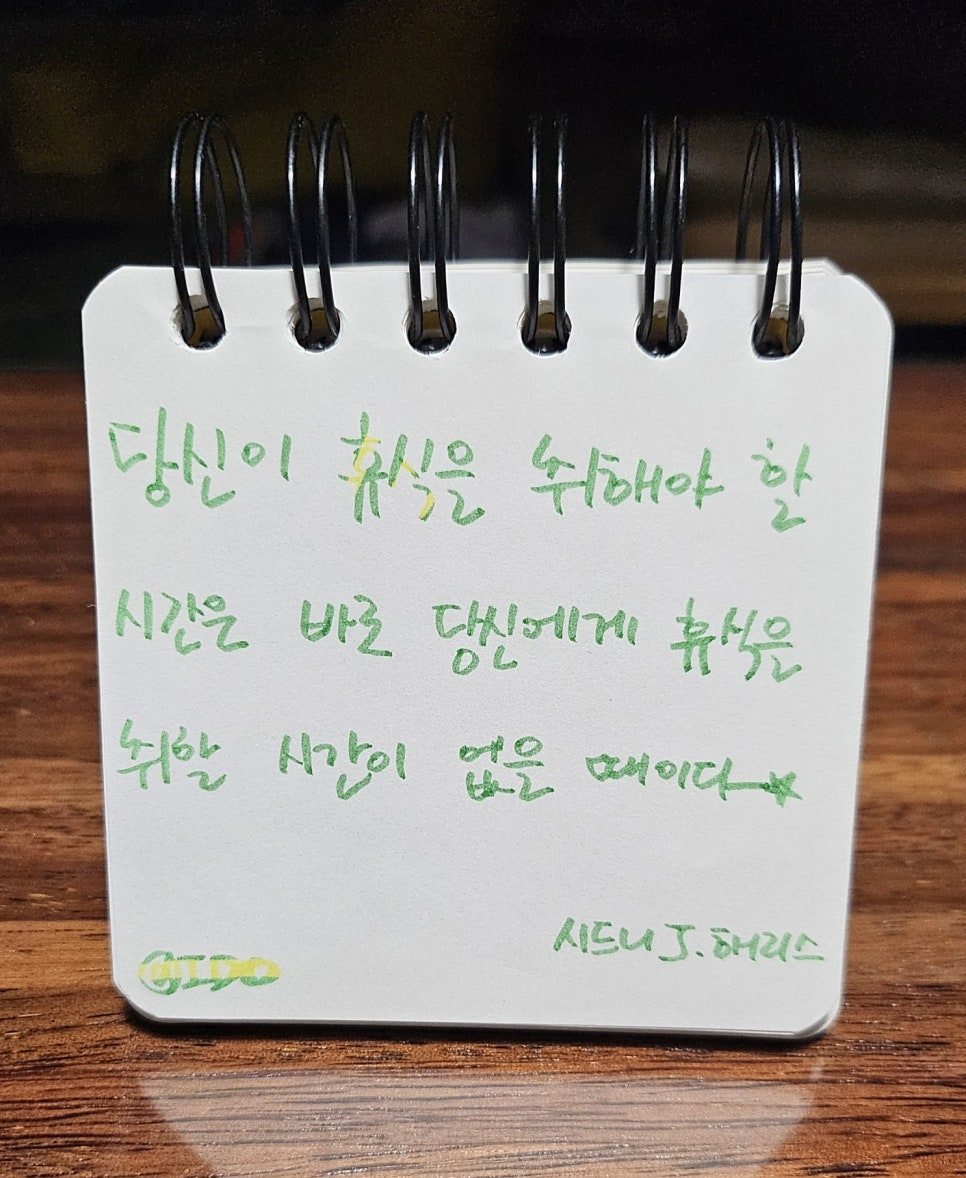 당신이 휴식을 취해야 할
시간은 바로 당신에게 휴식을
취할 시간이 없을 때이다★
시드니 J. 해리스